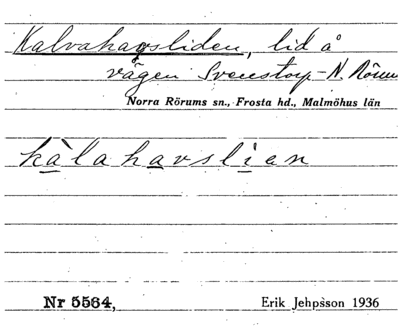 Kalvahagsliden, lid å
vägen Svenstorp-N. Röru
Norra Rörums sn., Frosta hd., Malmöhus län
kàlahavslian
Nr 5564, Erik Jehpsson 1936